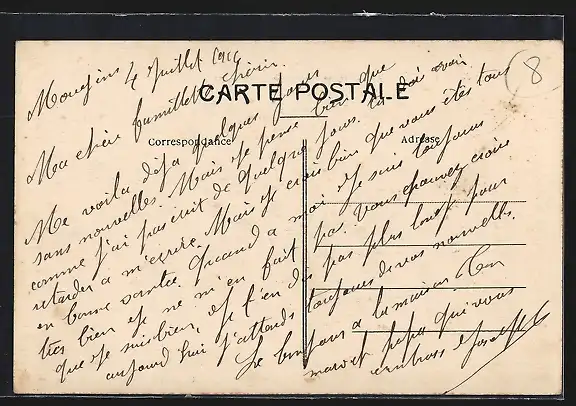 Mougins 4 Juillet
Ma chère famillette chérie.
CARTE POSTALE
Correspondance
Adresse
8
Me voila déja quelques jours
sans nouvelles. Mais je pense bien que
comme j'ai pas écrit de quelques jours. tu dois avoir
retarder a m'écrire. Mais je crois bien que vous êtes tous
en bonne santée. Quand a moi je suis toujours
très bien je ne m'en fait pas. Vous pouvez croire
que je suis bien, et je pas plus long pour
aujourd'hui j'attends toujours de vos nouvelles.
Le bonjour a la maison
et papa qui vous
embrasse